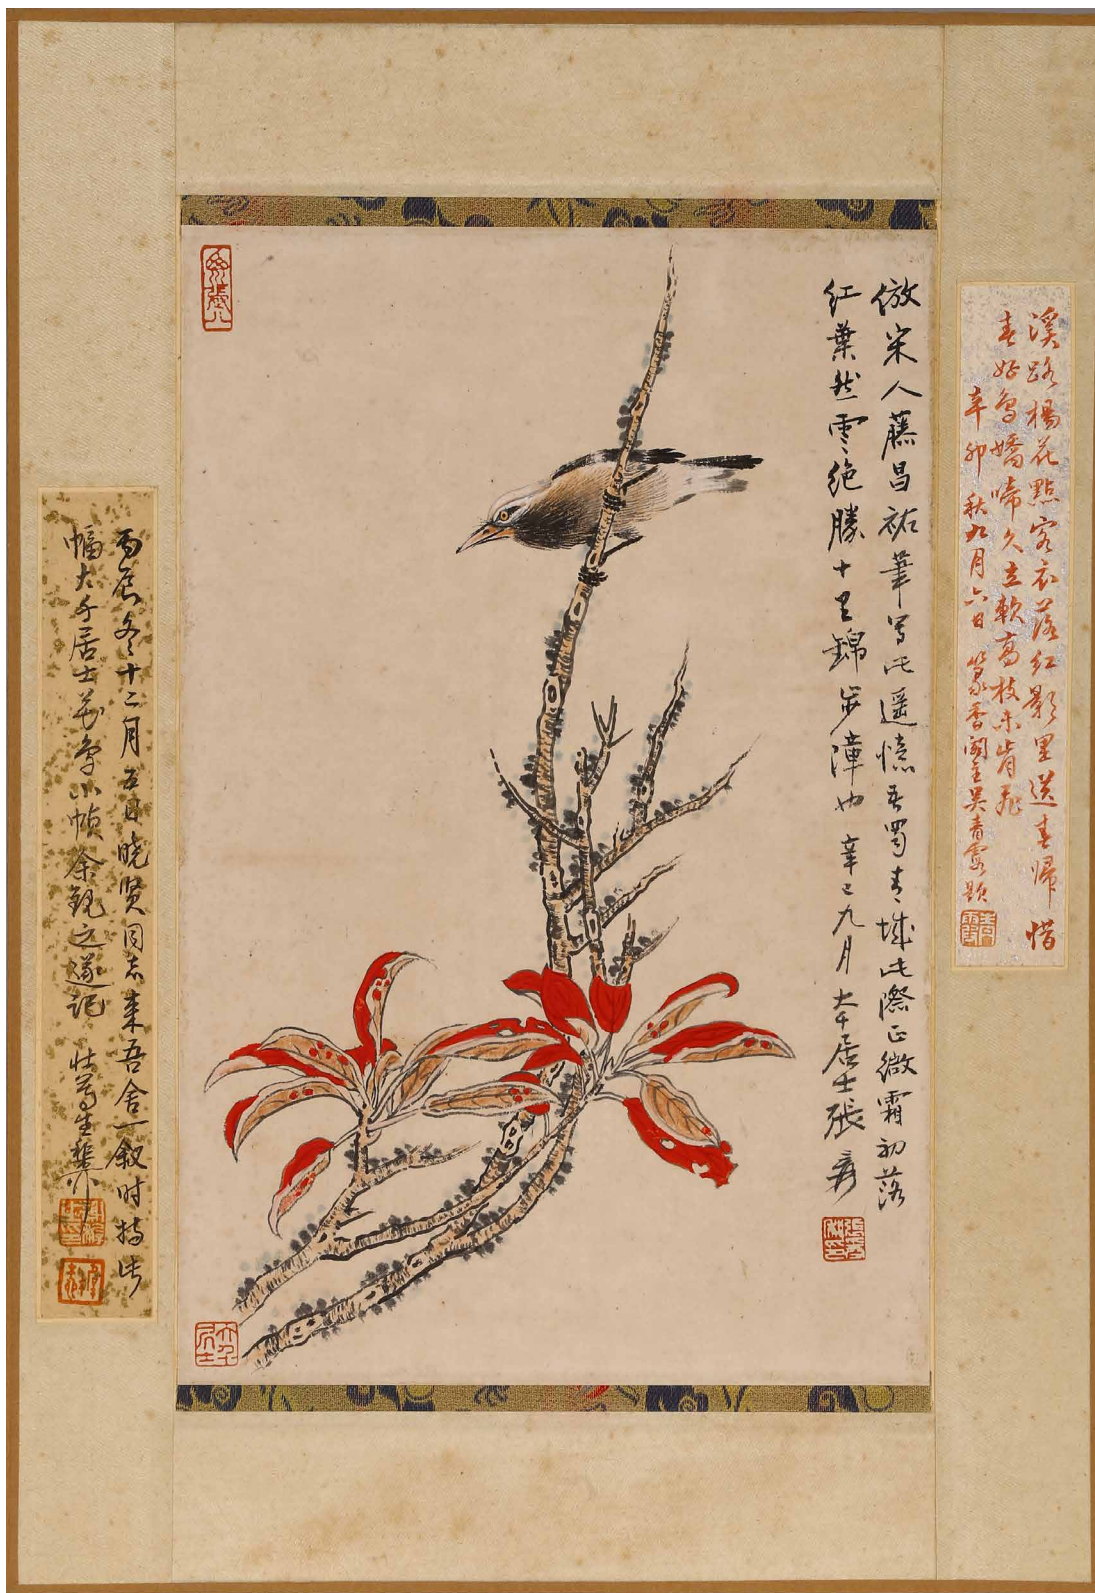 溪路楊花點客衣落紅影里送春歸惜
春好鳥嬌啼久立軟高枝未肯飛
辛卯秋九月六日篆香閣主吳青霞題
倣宋人藤昌祐筆寫此遥憶吾蜀青城此際正微霜初落
紅葉然雲絶勝十里錦步障也 辛巳九月 大千居士張爰
丙辰冬十二月五日晓贤同志来吾舍一叙时持此
幅大千居士花鸟小幀余観之遂记